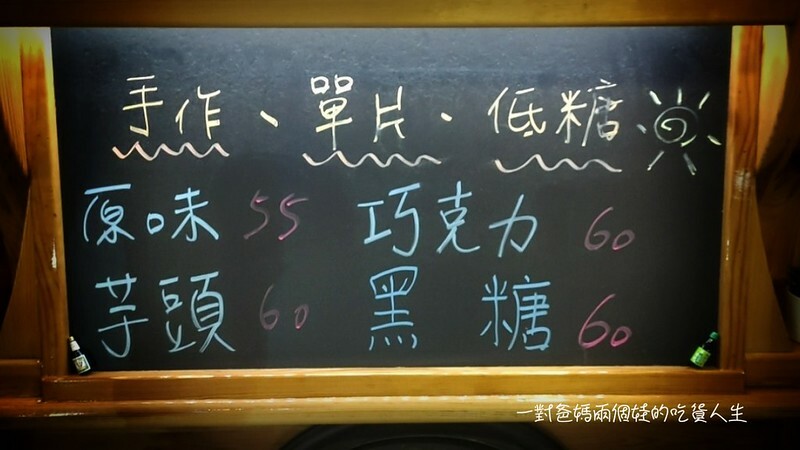 手作、單片、低糖、
原味 55 巧克力 60
芋頭 60 黑糖 60
一對爸媽兩個娃的吃貨人生